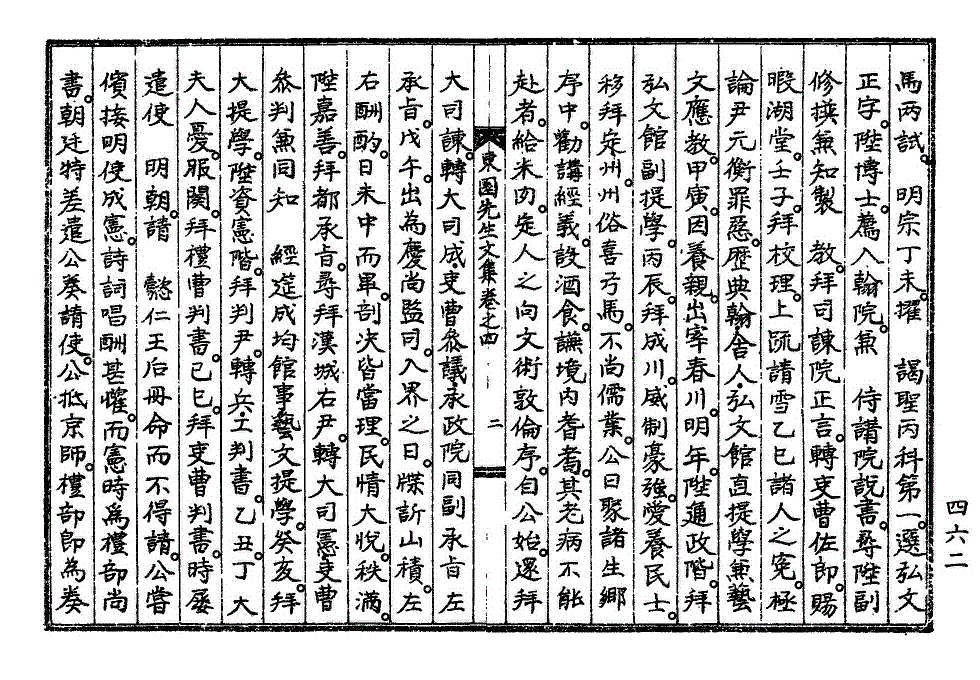 馬兩試。 明宗丁未。擢 謁聖丙科第一。選弘文
正字。陞博士。薦入翰院。兼 侍講院說書。尋陞副
修撰兼知製 敎。拜司諫院正言。轉吏曹佐郎。賜
暇湖堂。壬子。拜校理。上疏請雪乙巳諸人之寃。極
論尹元衡罪惡。歷典翰,舍人,弘文館直提學兼藝
文應敎。甲寅。因養親。出宰春川。明年。陞通政階。拜
弘文館副提學。丙辰。拜成川。威制豪強。愛養民士。
移拜定州。州俗喜弓馬。不尙儒業。公日聚諸生鄕
序中。勸講經義。設酒食。讌境內耆耈。其老病不能
赴者。給米肉。定人之向文術敦倫序。自公始。還拜
東園先生文集卷之四 二
大司諫。轉大司成,吏曹參議,承政院同副承旨,左
承旨。戊午。出爲慶尙監司。入界之日。牒訴山積。左
右酬酌。日未中而畢。剖決皆當理。民情大悅。秩滿。
陞嘉善。拜都承旨。尋拜漢城右尹。轉大司憲,吏曹
參判兼同知 經筵成均館事,藝文提學。癸亥。拜
大提學。陞資憲階。拜判尹。轉兵,工判書。乙丑。丁 大
夫人憂。服闋。拜禮曹判書。己巳。拜吏曹判書。時屢
遣使 明朝。請 懿仁王后冊命而不得請。公嘗
儐接明使成憲。詩詞唱酬甚懽。而憲時爲禮部尙
書。朝廷特差遣公奏請使。公抵京師。禮部卽爲奏
四六二